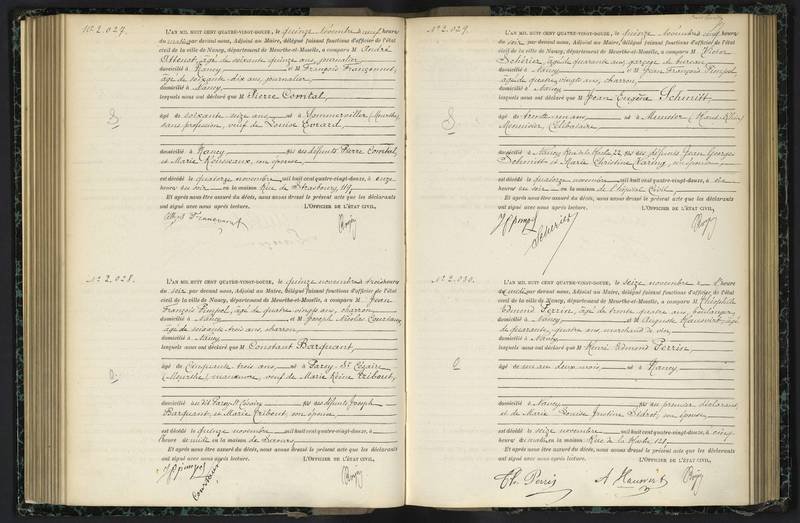 No 2.027.
L'AN MIL HUIT CENT QUATRE-VINGT-DOUZE, le quinze novembre neuf heures
du matin par devant nous, Adjoint au Maire, délégué faisant fonctions d'officier de l'état
civil de la ville de Nancy, département de Meurthe-et-Moselle, a comparu M. André
âgé de soixante quinze ans, journalier
domicilié à Nancy et M François
âgé de soixante dix ans, journalier
domicilié à Nancy
lesquels nous ont déclaré que M Pierre Comtal,
âgé de soixante seize ans né à Sommerviller (Meurthe)
sans profession, veuf de Louise Evrard,
domicilié à Nancy fils des défunts Pierre Comtal,
et Marie Rousseaux, son épouse
est décédé le quatorze novembre mil huit cent quatre-vingt-douze, à onze
heures du soir en la maison Rue de Strasbourg, 119,
Et après nous être assuré du décès, nous avons dressé le présent acte que les déclarants
ont signé avec nous après lecture. L'OFFICIER DE L'ÉTAT CIVIL,
No 2.028.
L'AN MIL HUIT CENT QUATRE-VINGT-DOUZE, le quinze novembre trois heures
du soir par devant nous, Adjoint au Maire, délégué faisant fonctions d'officier de l'état
civil de la ville de Nancy, département de Meurthe-et-Moselle, a comparu M. Jean
François Pimpol, âgé de quatre vingts ans, charron
domicilié à Nancy et M Joseph Nicolas
âgé de soixante trois ans, charron
domicilié à Nancy
lesquels nous ont déclaré que M Constant Barquant,
âgé de Cinquante trois ans né à Parey St Césaire
(Meurthe) manœuvre, veuf de Marie Reine
domicilié audit Parey St Césaire fils des défunts Joseph
Barquant, et Marie son épouse
est décédé le quinze novembre mil huit cent quatre-vingt-douze, à
l'heure de midi en la maison de Secours
Et après nous être assuré du décès, nous avons dressé le présent acte que les déclarants
ont signé avec nous après lecture. L'OFFICIER DE L'ÉTAT CIVIL,
No 2.029.
L'AN MIL HUIT CENT QUATRE-VINGT-DOUZE, le quinze novembre cinq heures
du soir par devant nous, Adjoint au Maire, délégué faisant fonctions d'officier de l'état
civil de la ville de Nancy, département de Meurthe-et-Moselle, a comparu M. Victor
Schérier, âgé de quarante ans, garçon de bureau
domicilié à Nancy et M Jean François Pimpol,
âgé de quatre vingts ans, charron
domicilié à Nancy
lesquels nous ont déclaré que M Jean Eugène Schmitt
âgé de trente un ans né à Munster (Haut Rhin)
Menuisier, Célibataire
domicilié à Nancy 22 fils des défunts Jean George
Schmitt et Marie Christine son épouse
est décédé le quatorze novembre mil huit cent quatre-vingt-douze, à six
heures du soir en la maison de l'hôpital Civil,
Et après nous être assuré du décès, nous avons dressé le présent acte que les déclarants
ont signé avec nous après lecture. L'OFFICIER DE L'ÉTAT CIVIL,
No 2.030.
L'AN MIL HUIT CENT QUATRE-VINGT-DOUZE, le seize novembre à l'heure
de midi par devant nous, Adjoint au Maire, délégué faisant fonctions d'officier de l'état
civil de la ville de Nancy, département de Meurthe-et-Moselle, a comparu M. Théophile
Edmond Perrin, âgé de trente quatre ans, boulanger
domicilié à Nancy et M Auguste Hauvert, âgé
de quarante quatre ans, marchand de vin,
domicilié à Nancy
lesquels nous ont déclaré que M Henri Edmond Perrin,
âgé de un an deux mois, né à Nancy
domicilié à Nancy fils du premier déclarant
et de Marie Louise Justine Didrot, son épouse,
est décédé le seize novembre mil huit cent quatre-vingt-douze, à cinq
heures du matin en la maison Rue de la
Et après nous être assuré du décès, nous avons dressé le présent acte que les déclarants
ont signé avec nous après lecture. L'OFFICIER DE L'ÉTAT CIVIL,
A Hauvert